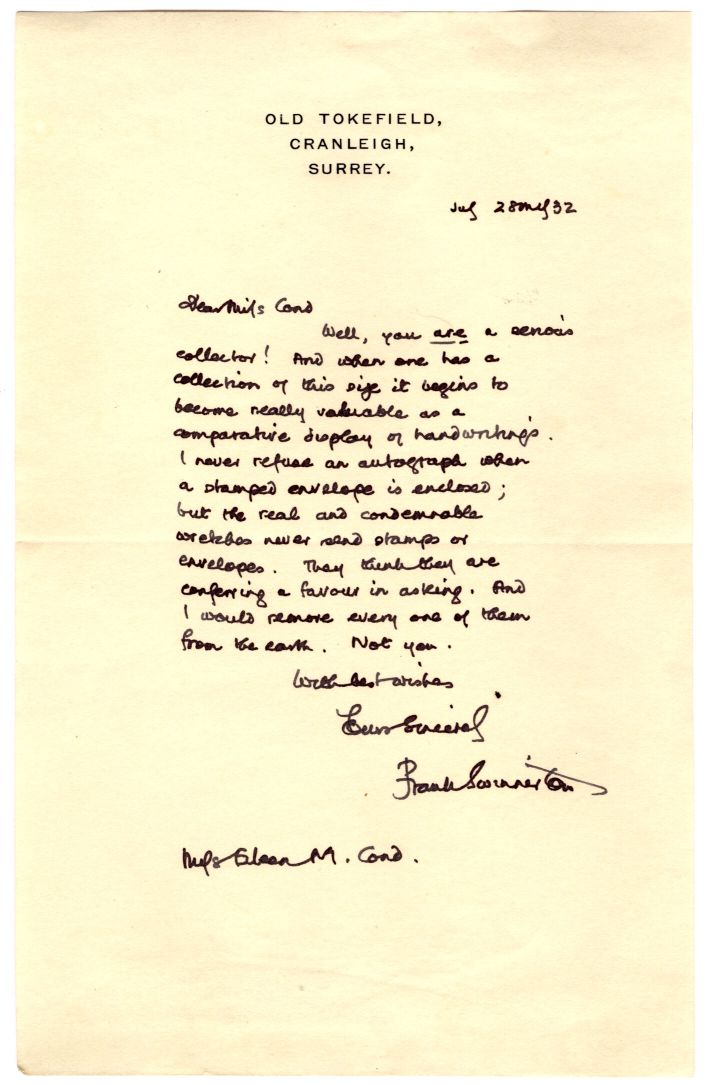 OLD TOKEFIELD,
CRANLEIGH,
SURREY.
July 28 1932
Dear Miss Cond
Well, you are a serious
collector! And when one has a
collection of this size it begins to
become really valuable as a
comparative display of handwritings.
I never refuse an autograph when
a stamped envelope is enclosed;
but the real and condemnable
wretches never send stamps or
envelopes. They think they are
conferring a favour in asking. And
I would remove every one of them
from the earth. Not you.
With best wishes
Yours sincerely
Frank Swinnerton
Miss Eileen M. Cond.